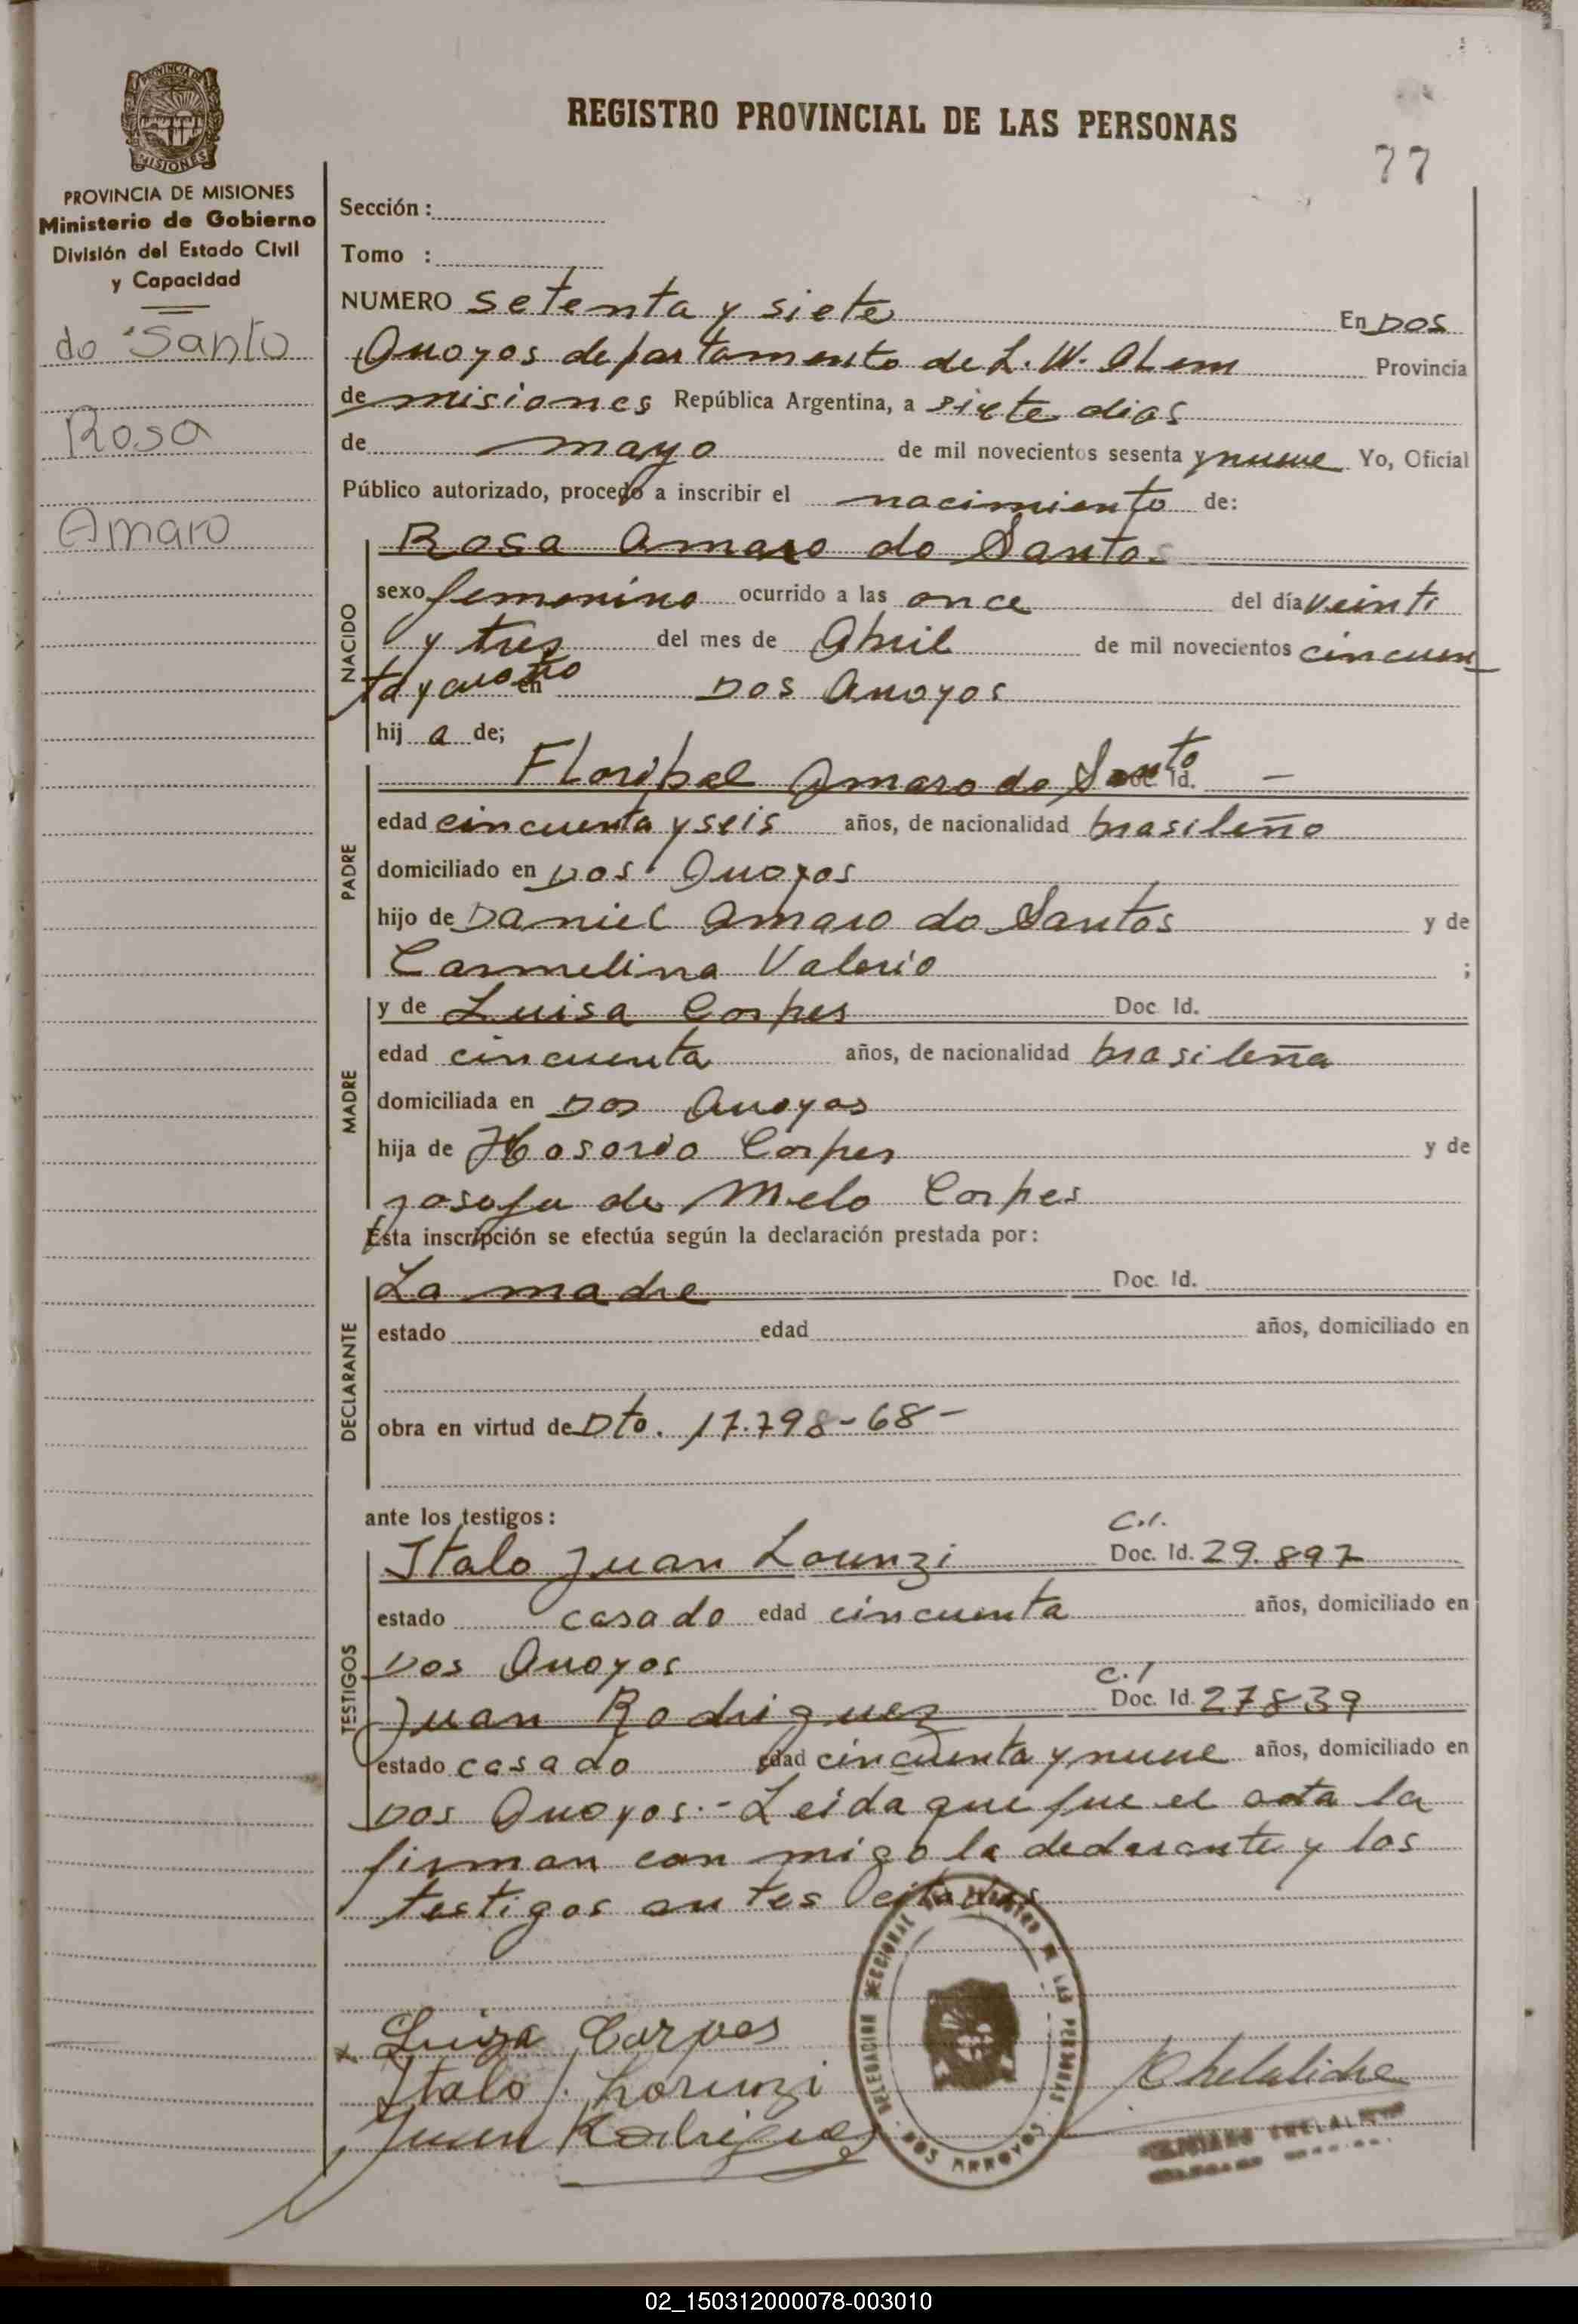 REGISTRO PROVINCIAL DE LAS PERSONAS
77
PROVINCIA DE MISIONES
PROVINCIA DE MISIONES
Ministerio de Gobierno
División del Estado Civil
y Capacidad
do Santo
Rosa
Amaro
Sección :
Tomo :
NUMERO setenta y siete En Dos
Arroyos departamento de L. N. Alem Provincia
de misiones República Argentina, a siete dias
de mayo de mil novecientos sesenta y nueve Yo, Oficial
Público autorizado, procedo a inscribir el nacimiento de:
NACIDO
Rosa Amaro do Santos
sexo femenino ocurrido a las once del día veinti
y tres del mes de Abril de mil novecientos cincuen
ta y cuatro en Dos Arroyos
hij a de;
PADRE
Floribal Amaro do Santo Doc. Id. —
edad cincuenta y seis años, de nacionalidad brasileño
domiciliado en Dos Arroyos
hijo de Daniel Amaro do Santos y de
Carmelina Valerio ;
MADRE
y de Luisa Corpes Doc. Id.
edad cincuenta años, de nacionalidad brasileña
domiciliada en Dos Arroyos
hija de Hosorio Corpes y de
josefa de Melo Corpes
Esta inscripción se efectúa según la declaración prestada por :
DECLARANTE
La madre Doc. Id.
estado edad años, domiciliado en
obra en virtud de Dto. 17.798-68-
ante los testigos :
TESTIGOS
C.I.
Italo Juan Lorenzi Doc. Id. 29.897
estado casado edad cincuenta años, domiciliado en
Dos Arroyos
C.I
Juan Rodriguez Doc. Id. 27839
estado casado edad cincuenta y nueve años, domiciliado en
Dos Arroyos.- Leida que fue el acta la
firman con migo la declarante y los
testigos antes citados
DELEGACION SECCIONAL DEL REGISTRO DE LAS PERSONAS
DOS ARROYOS
x Luiza Corpes
Italo J. Lorenzi
Juan Rodriguez
02_150312000078-003010